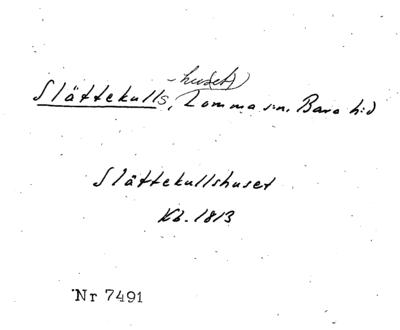 -huset)
Slättekulls, Lomma sn. Bara hd
Slättekullshuset
Kb. 1813
Nr 7491